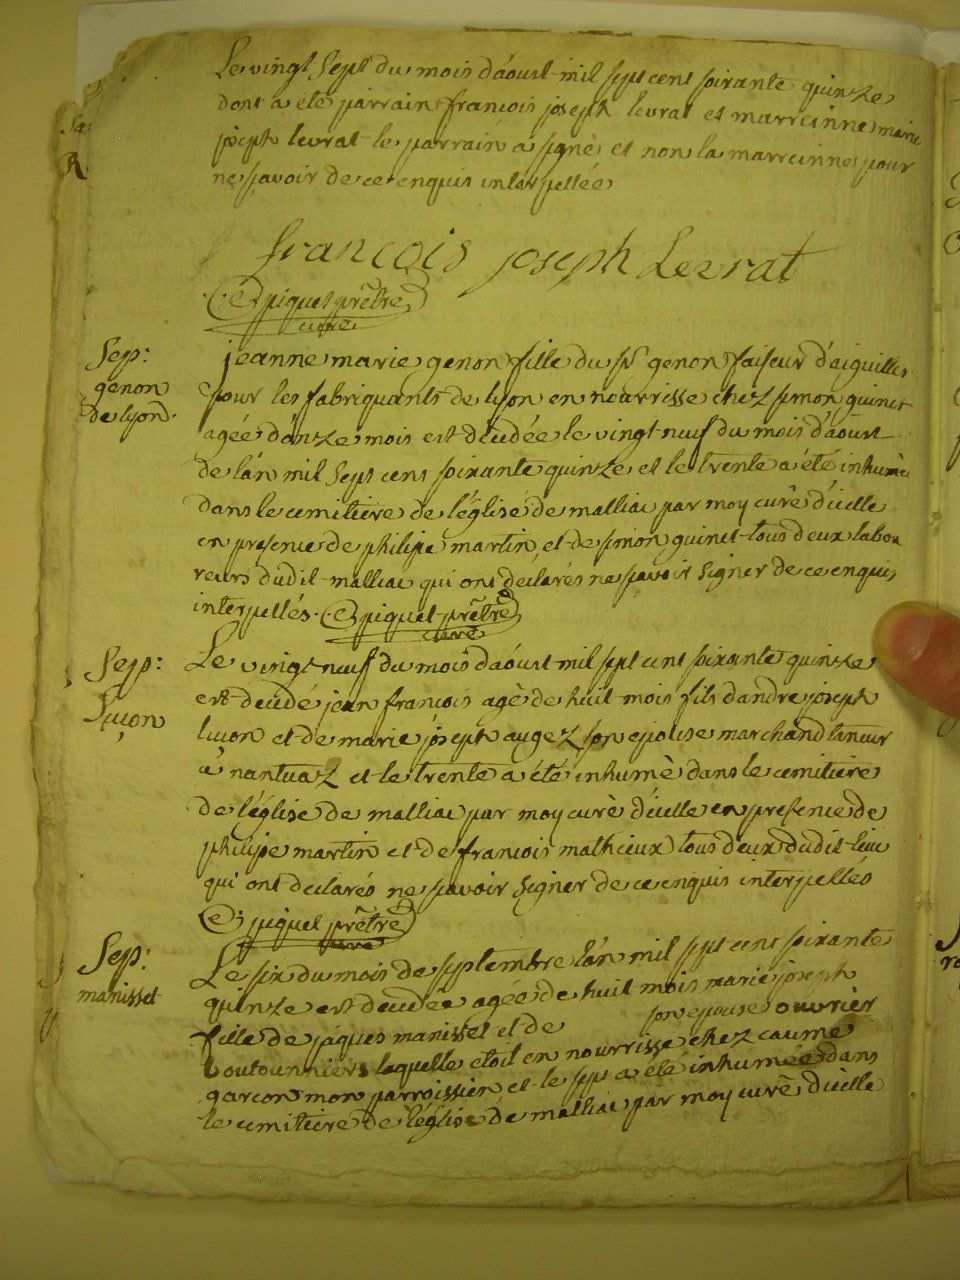 Le vingt sept du mois d'aoust mil sept cent soixante quinze
dont a été parrain françois joseph levrat et marrainne marie
joseph levrat le parrain a signé et non la marrainne pour
ne sçavoir de ce enquis interpellée
françois joseph Levrat
piquet prêtre
curé
Sep:
genon
de lyon.
jeanne marie genon fille du sr genon faiseur d'aiguilles
pour les fabriquants de lyon en nourrisse chez simon guinet
agée d'onze mois est décédée le vingt neuf du mois d'aoust
de l'an mil sept cens soixante quinze et le trente a été inhumée
dans le cemitière de l'église de malliac par moy curé d'icelle
en presence de philipe martin et de simon guinet tous deux labou
reurs dudit malliac qui ont declarés ne sçavoir signer de ce enquis
interpellés. piquet prêtre
curé
Sep:
Luçon
Le vingt neuf du mois d'aoust mil sept cent soixante quinze
est decedé jean françois agé de huit mois fils d'andre joseph
luçon et de marie joseph augez son epouse marchand tanneur
a nantuaz et le trente a été inhumé dans le cemitiere
de l'église de malliac par moy curé d'icelle en presence de
philipe martin et de francois mathieux tous deux dudit lieu
qui ont declarés ne sçavoir signer de ce enquis interpellés
piquet prêtre
curé
Sep:
manisset
Le six du mois de septembre l'an mil sept cent soixante
quinze est decedée agée de huit mois marie joseph
fille de jàques manisset et de son epouse ouvrier
boutonniers laquelle etoit en nourrisse chez caume
garcon mon parroissien et le sept a été inhumée dans
le cemitiere de l'église de malliac par moy curé d'icelle